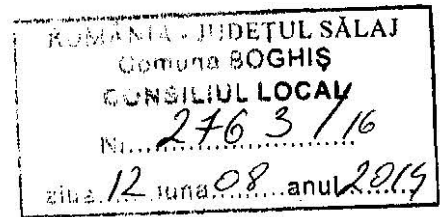 ROMÂNIA - JUDEȚUL SĂLAJ
Comuna BOGHIȘ
CONSILIUL LOCAL
Nr. 2763 / 16
ziua 12 luna 08 anul 2019